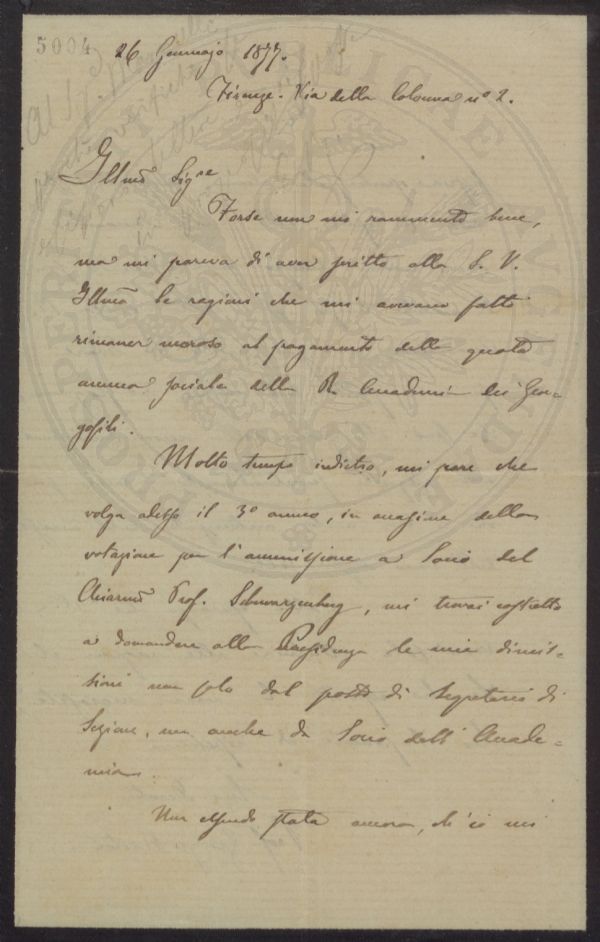 5004
26 Gennajo 1877.
Firenze. Via della Colonna nº 2.
Al Sig.
Illmo Sigre
Forse non mi rammento bene,
ma mi pareva di aver scritto alla S. V.
Illma le ragioni che mi avevano fatto
rimaner moroso al pagamento della quota
annua sociale della R. Accademia dei Geor-
gofili.
Molto tempo indietro, mi pare che
volga adesso il 3º anno, in occasione della
votazione per l'ammissione a Socio del
Chiarmo Prof. Schwarzenberg, mi trovai costretto
a domandare alla Presidenza le mie dimis-
sioni non solo dal posto di Segretario di
Sezione, ma anche da Socio dell'Accade-
mia.
Non essendo stata ancora, ch'io mi